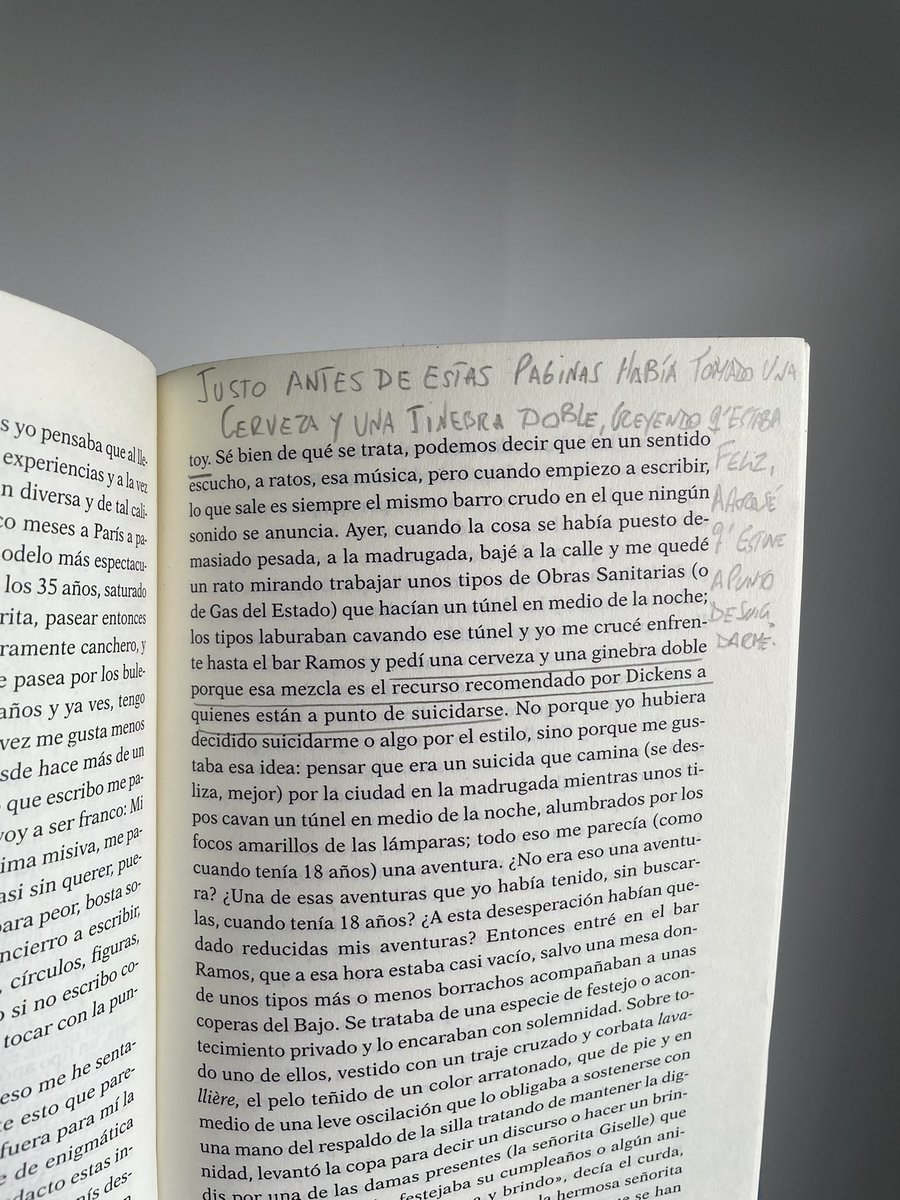 s yo pensaba que al lle-
experiencias y a la vez
n diversa y de tal cali-
co meses a París a pa-
odelo más espectacu-
los 35 años, saturado
rita, pasear entonces
ramente canchero, y
e pasea por los bule-
años y ya ves, tengo
vez me gusta menos
sde hace más de un
que escribo me pa-
voy a ser franco: Mi
ima misiva, me pa-
asi sin querer, pue-
para peor, bosta so-
ncierro a escribir,
círculos, figuras,
o si no escribo co-
tocar con la pun-
eso me he senta-
te esto que pare-
fuera para mí la
e de enigmática
dacto estas in-
nís des-
JUSTO ANTES DE ESTAS PAGINAS HABÍA TOMADO UNA
CERVEZA Y UNA JINEBRA DOBLE, CREYENDO Q' ESTABA
FELIZ,
AHORA SÉ
Q' ESTUVE
A PUNTO
DE SUICI
DARME.
toy. Sé bien de qué se trata, podemos decir que en un sentido
escucho, a ratos, esa música, pero cuando empiezo a escribir,
lo que sale es siempre el mismo barro crudo en el que ningún
sonido se anuncia. Ayer, cuando la cosa se había puesto de-
masiado pesada, a la madrugada, bajé a la calle y me quedé
un rato mirando trabajar unos tipos de Obras Sanitarias (o
de Gas del Estado) que hacían un túnel en medio de la noche;
los tipos laburaban cavando ese túnel y yo me crucé enfren-
te hasta el bar Ramos y pedí una cerveza y una ginebra doble
porque esa mezcla es el recurso recomendado por Dickens a
quienes están a punto de suicidarse. No porque yo hubiera
decidido suicidarme o algo por el estilo, sino porque me gus-
taba esa idea: pensar que era un suicida que camina (se des-
liza, mejor) por la ciudad en la madrugada mientras unos ti-
pos cavan un túnel en medio de la noche, alumbrados por los
focos amarillos de las lámparas; todo eso me parecía (como
cuando tenía 18 años) una aventura. ¿No era eso una aventu-
ra? ¿Una de esas aventuras que yo había tenido, sin buscar-
las, cuando tenía 18 años? ¿A esta desesperación habían que-
dado reducidas mis aventuras? Entonces entré en el bar
Ramos, que a esa hora estaba casi vacío, salvo una mesa don-
de unos tipos más o menos borrachos acompañaban a unas
coperas del Bajo. Se trataba de una especie de festejo o acon-
tecimiento privado y lo encaraban con solemnidad. Sobre to-
do uno de ellos, vestido con un traje cruzado y corbata lava-
llière, el pelo teñido de un color arratonado, que de pie y en
medio de una leve oscilación que lo obligaba a sostenerse con
una mano del respaldo de la silla tratando de mantener la dig-
nidad, levantó la copa para decir un discurso o hacer un brin-
dis por una de las damas presentes (la señorita Giselle) que
festejaba su cumpleaños o algún ani-
y brindo», decía el curda,
la hermosa señorita
se han